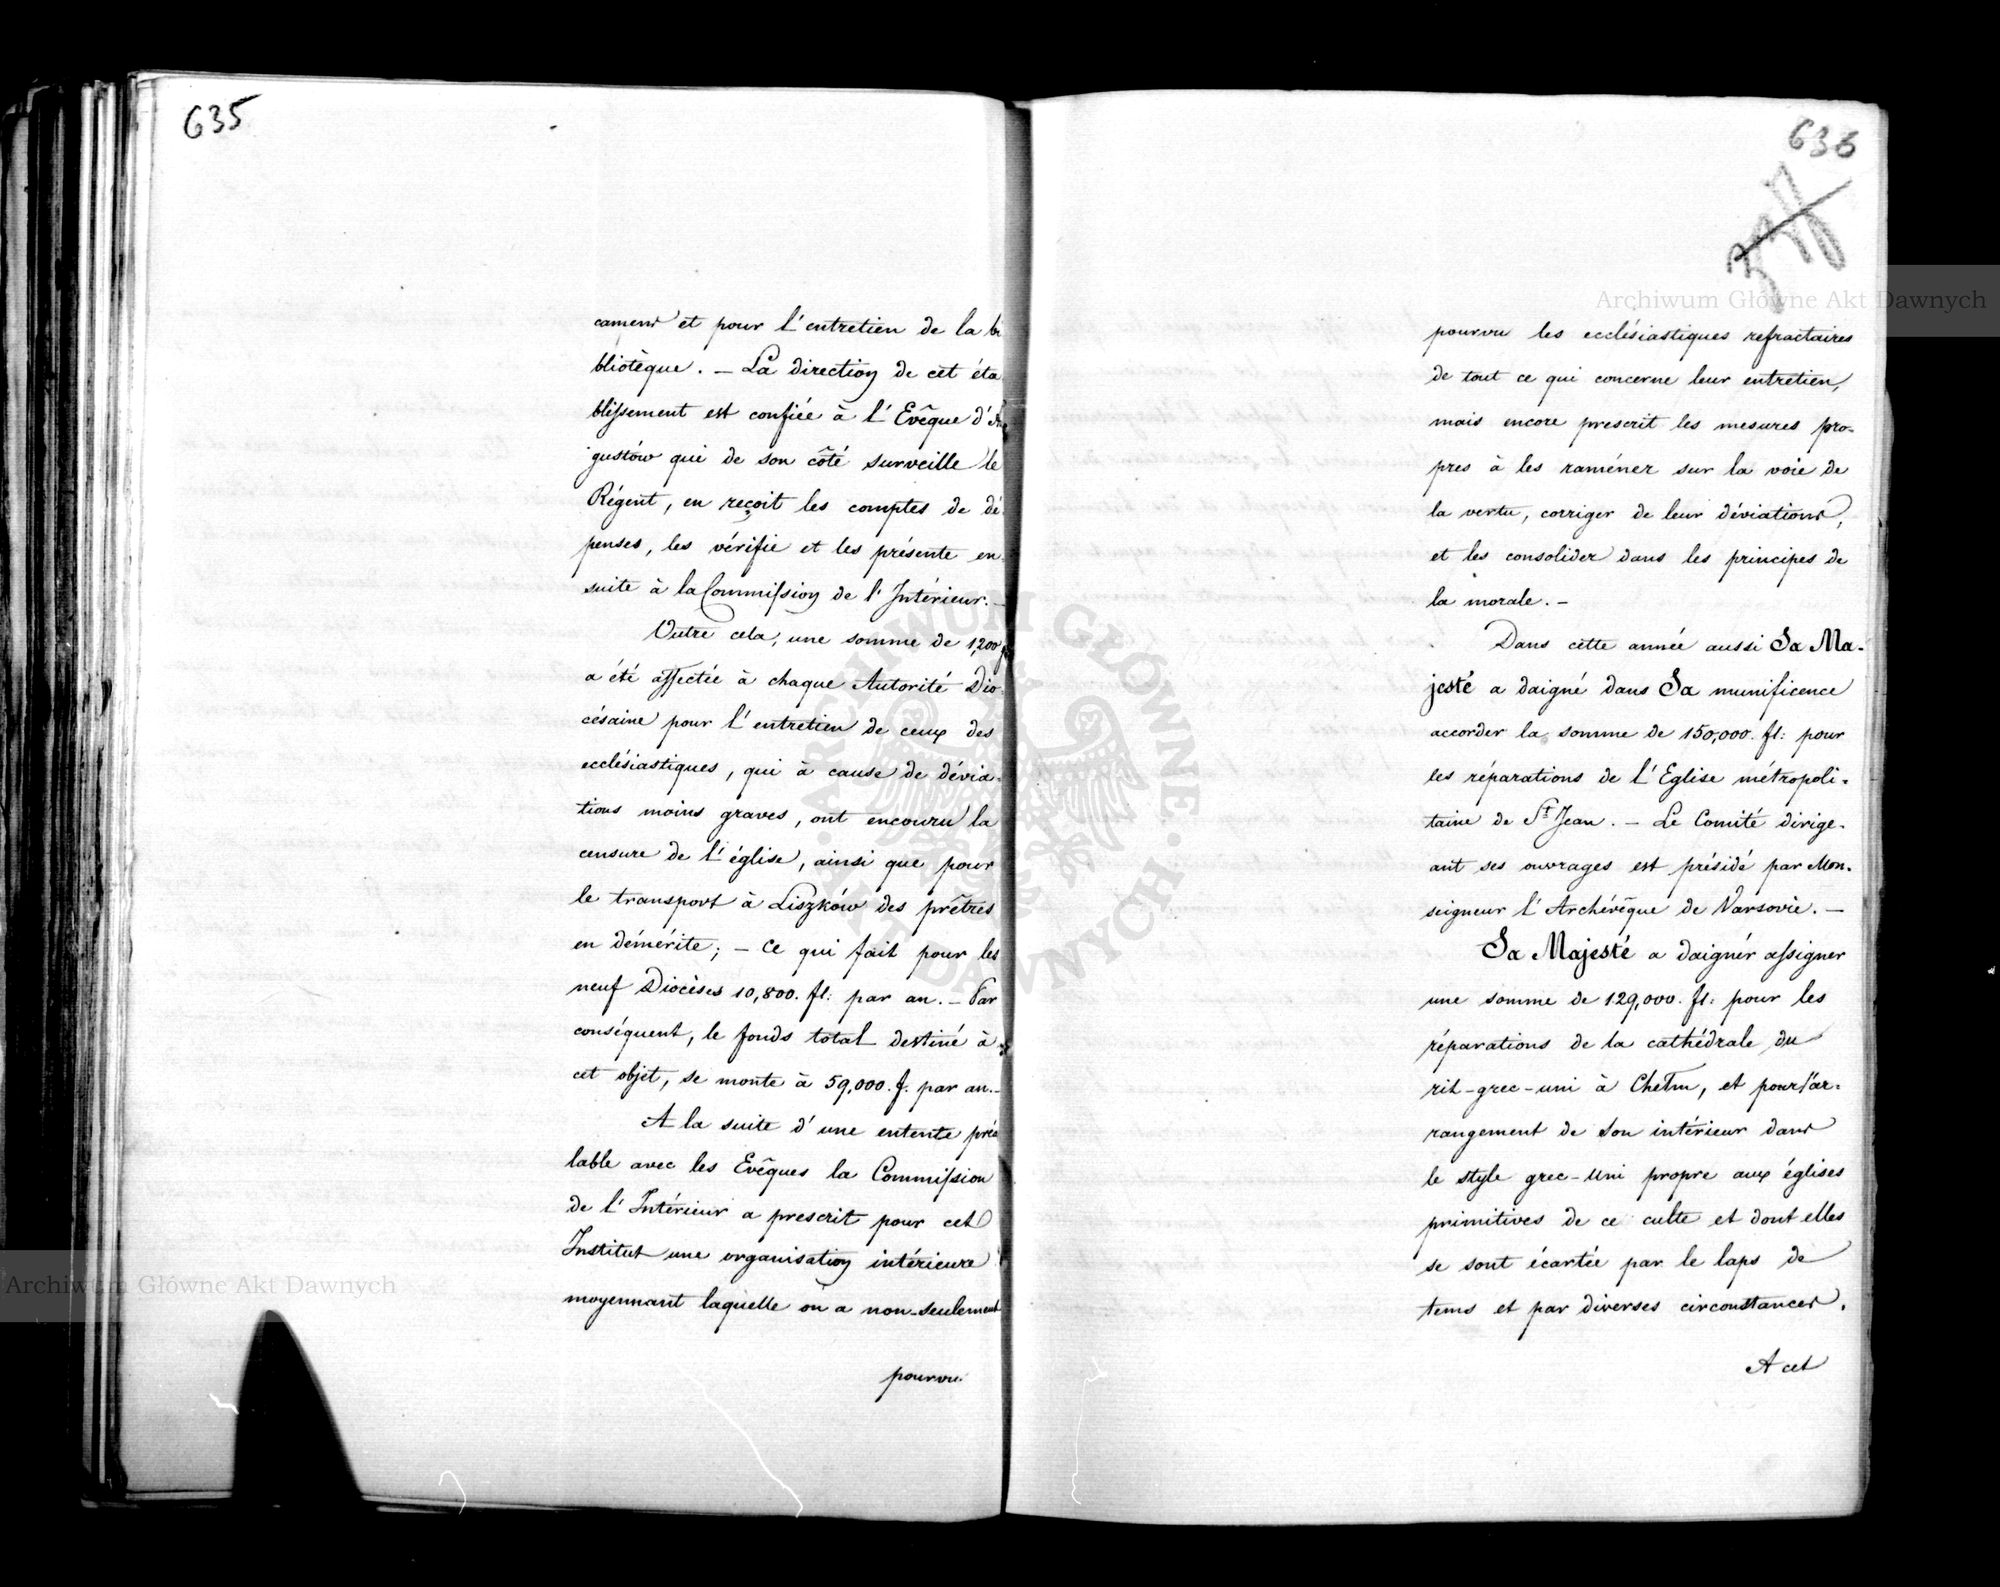 635
camens et pour l'entretien de la bi
bliotèque. — La direction de cet éta
blissement est confiée à l'Evêque d'Au
gustów qui de son côté surveille le
Régent, en reçoit les comptes de dé
penses, les vérifie et les présente en
suite à la Commission de l'Intérieur. —
Outre cela, une somme de 1,200 f
a été affectée à chaque Autorité Dio
césaine pour l'entretien de ceux des
ecclésiastiques, qui à cause de dévia-
tions moins graves, ont encouru la
censure de l'église, ainsi que pour
le transport à Liszków des prêtres
en démérite; — ce qui fait pour les
neuf Diocèses 10,800. fl: par an. — Par
conséquent, le fonds total destiné à
cet objet, se monte à 59,000. f. par an. —
A la suite d'une entente préa
lable avec les Evêques la Commission
de l'Intérieur a prescrit pour cet
Institut une organisation intérieure
moyennant laquelle on a non-seulement
pourvu
636
pourvu les ecclésiastiques refractaires
de tout ce qui concerne leur entretien,
mais encore prescrit les mesures pro-
pres à les raméner sur la voie de
la vertu, corriger de leur déviations,
et les consolider dans les principes de
la morale. —
Dans cette année aussi Sa Ma-
jesté a daigné dans Sa munificence
accorder la somme de 150,000. fl: pour
les réparations de l'Eglise métropoli-
taine de St Jean. — Le Comité dirige-
ant ses ouvrages est présidé par Mon-
seigneur l'Archévêque de Varsovie. —
Sa Majesté a daignér assigner
une somme de 129,000. fl: pour les
réparations de la cathédrale du
rit-grec-uni à Chełm, et pour l'ar-
rangement de son intérieur dans
le style grec-uni propre aux églises
primitives de ce culte et dont elles
se sont écartée par le laps de
tems et par diverses circonstances.
A cet
Archiwum Główne Akt Dawnych
Archiwum Główne Akt Dawnych
ARCHIWUM GŁÓWNE AKT DAWNYCH